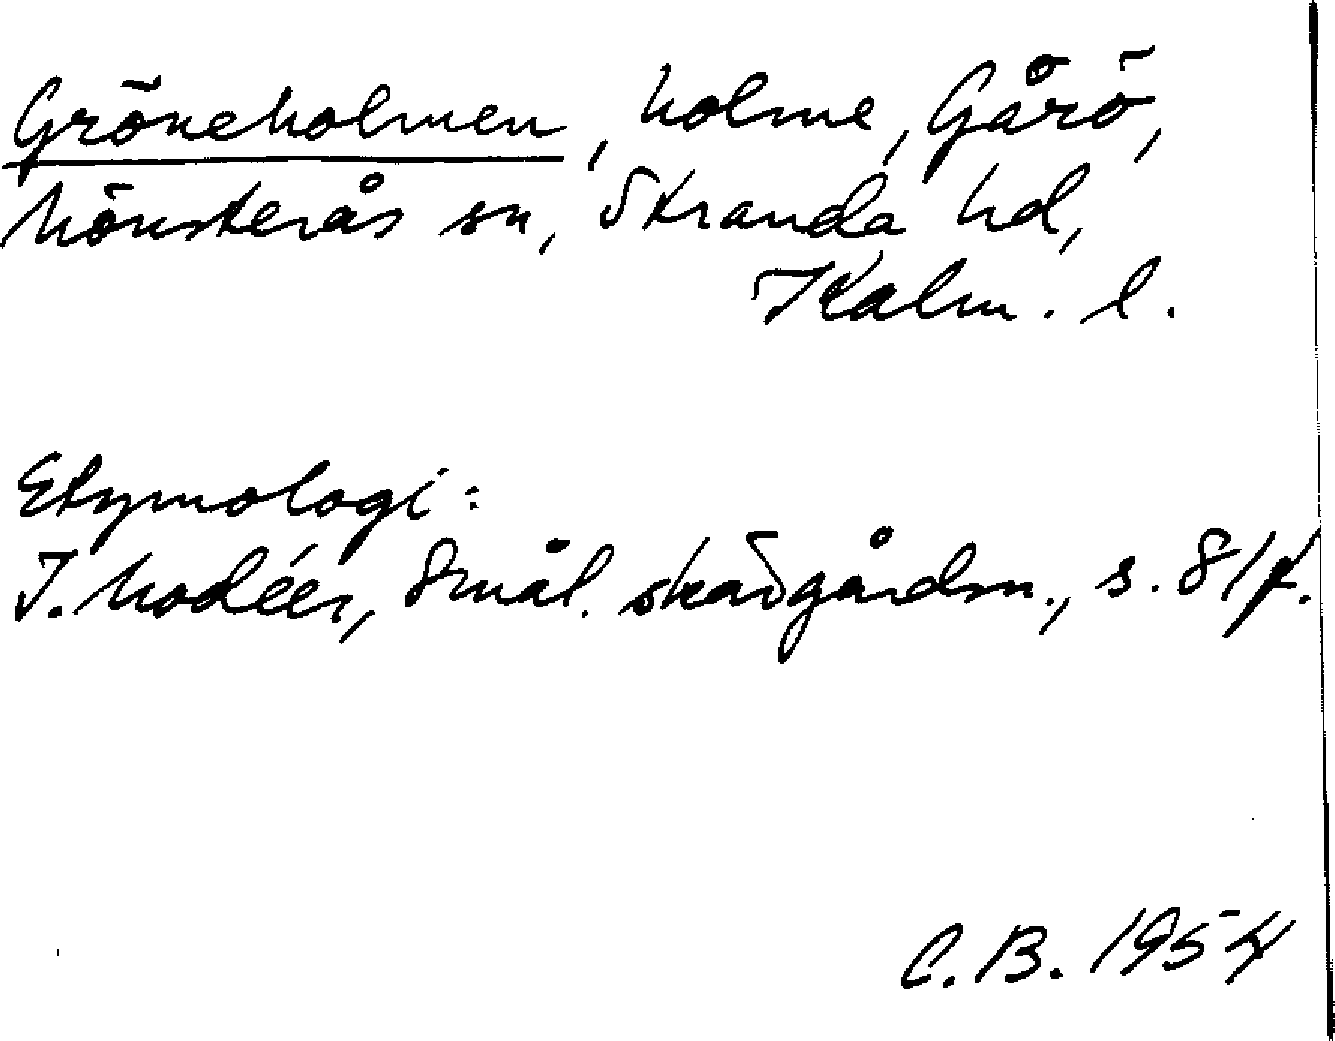 Gröneholmen, holme, Gårö,
Mönsterås sn, Stranda hd,
Kalm. l.
Etymologi:
I. Modéer, Smål. skärgårdsn., s. 81 f.
C. B. 1954